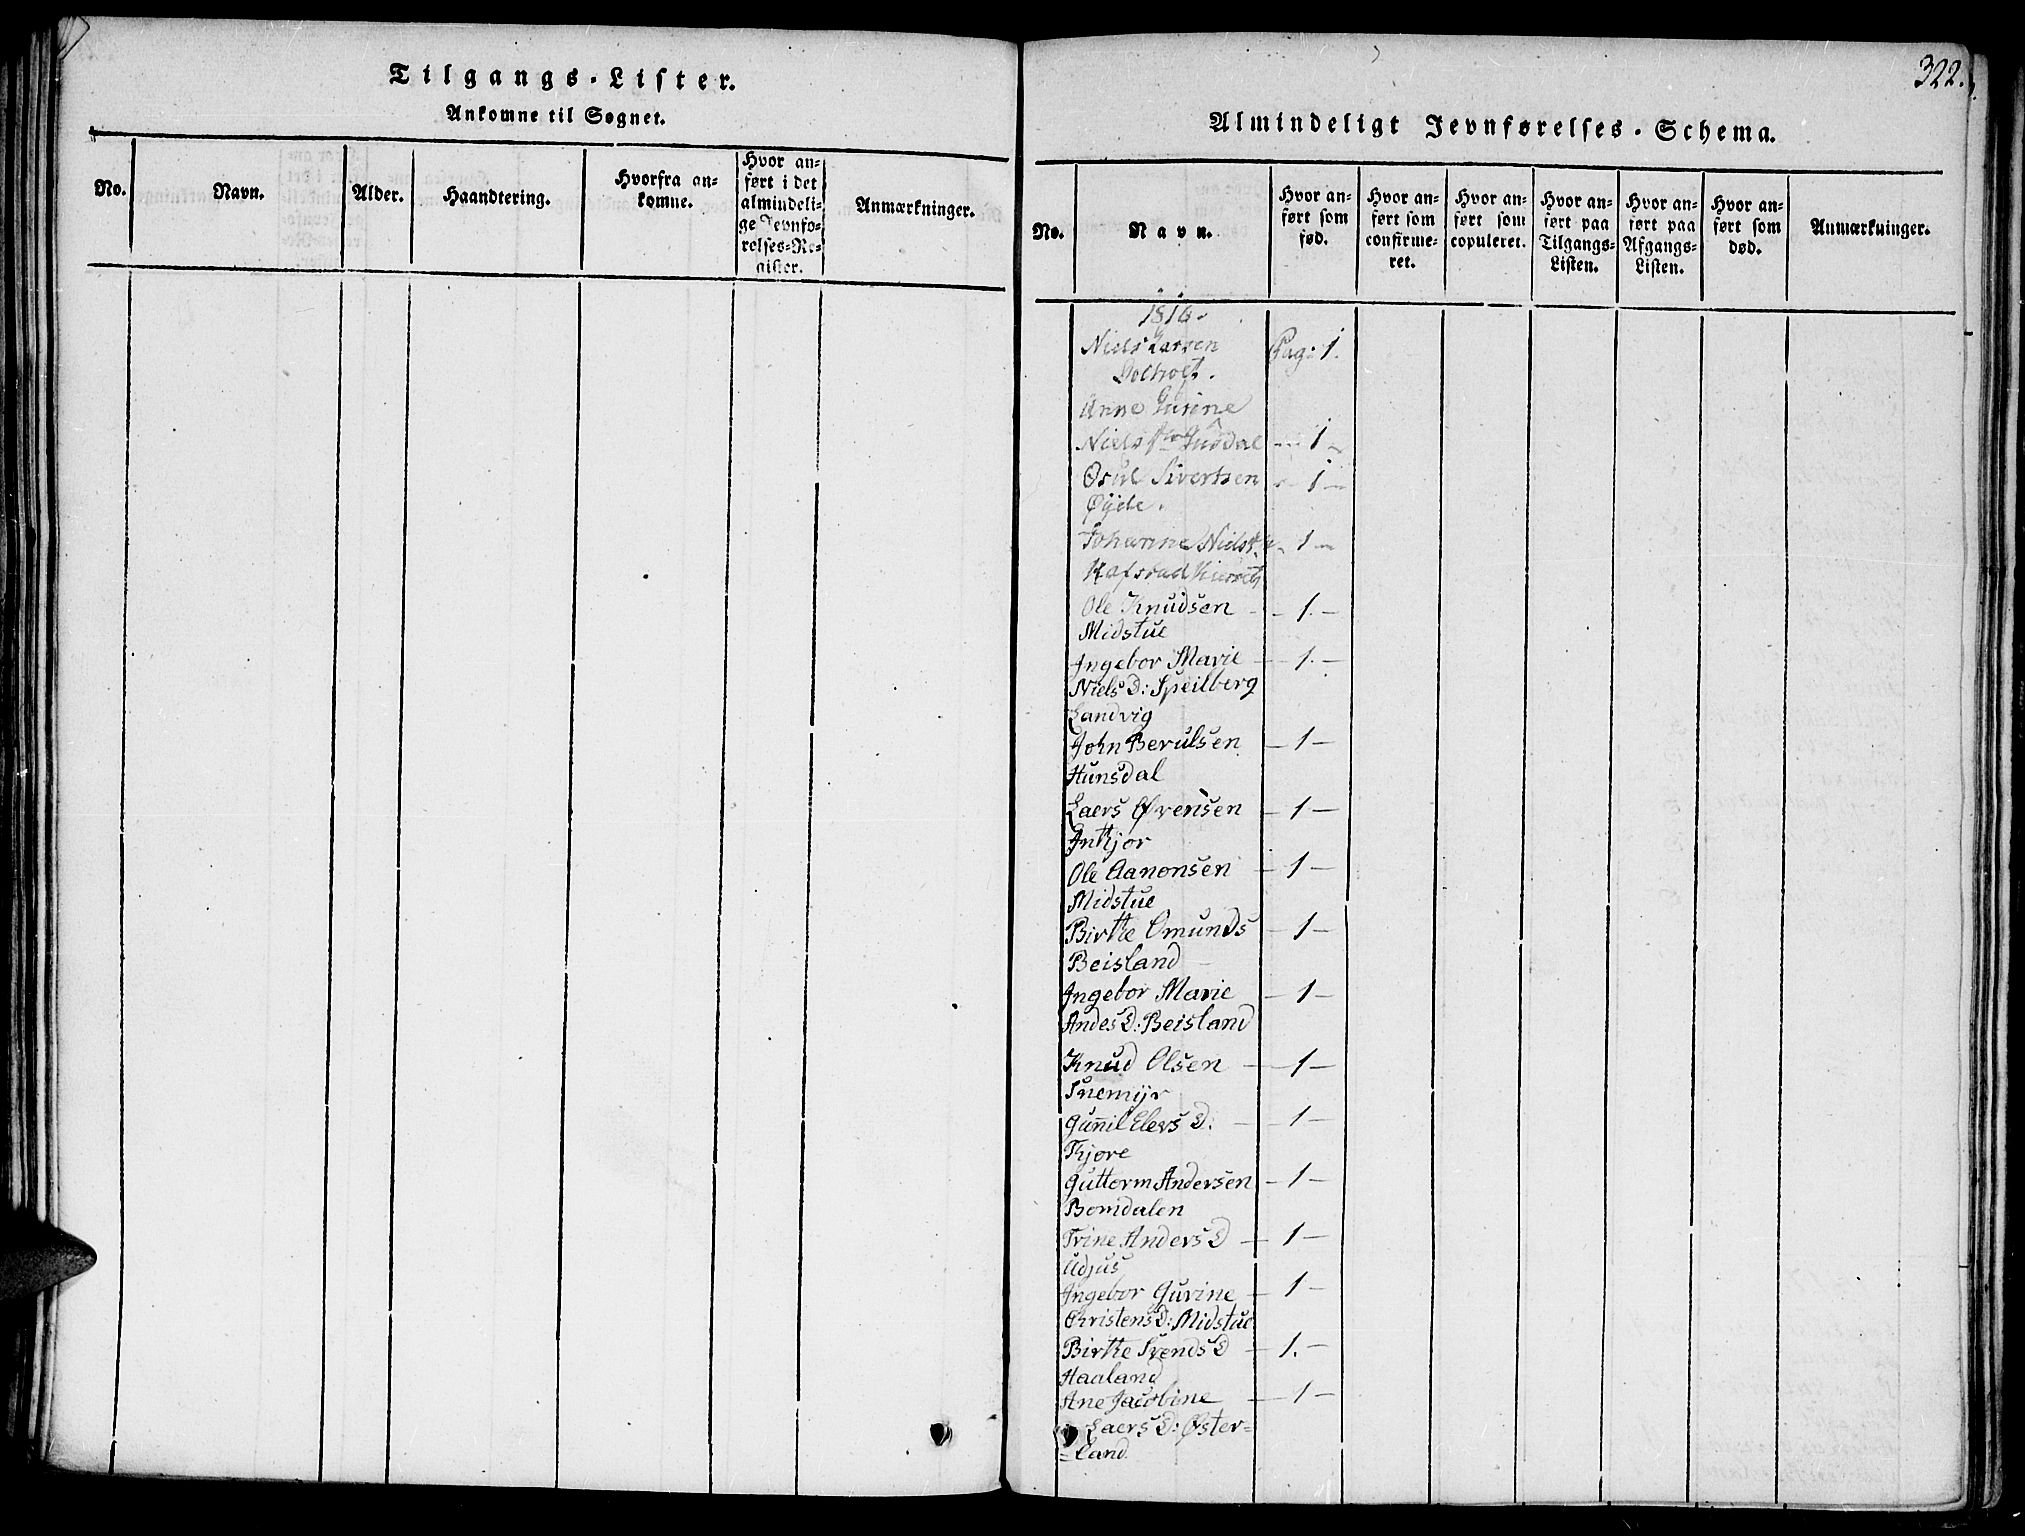 Tilgangs-Lister.
Ankomne til Sognet.
No.
Navn.
Alder.
Haandtering.
Hvorfra an-
komne.
Hvor an-
ført i det
almindeli-
ge Jevnfø-
relses-Re-
gister.
Anmærkninger.
322.
Almindeligt Jevnførelses-Schema.
No.
Navn.
Hvor an-
ført som
fød.
Hvor an-
ført som
confirme-
ret.
Hvor an-
ført som
copuleret.
Hvor an-
ført paa
Tilgangs-
Listen.
Hvor an-
ført paa
Afgangs-
Listen.
Hvor an-
ført som
død.
Anmærkninger.
1816.
Niels Larsen Pag: 1.
Anne
Niels - 1 -
Osul Sivertsen - 1 -
Øyde.
Johanne Niels - 1 -
Ole Knudsen - 1. -
Midstue
Ingebor Marie - 1. -
Niels D: Speilberg
Landvig
John Berulsen - 1 -
Hunsdal
Laers Øvensen - 1 -
Inkjor
Ole Aanonsen - 1 -
Midstue
Birthe Omunds - 1 -
Beisland
Ingebor Marie - 1 -
Andes D: Beisland
Knud Olsen - 1 -
Snemyr
Gunnil Elers D: - 1 -
Kjøre
Guttorm Andersen - 1 -
Bomdalen
Trine Anders D - 1 -
Udjus
Ingebor Gurine - 1 -
Christens D: Midstue
Birthe Svends D - 1. -
Haaland
Ane Jacobine - 1 -
Laers D: Øster-
-land.